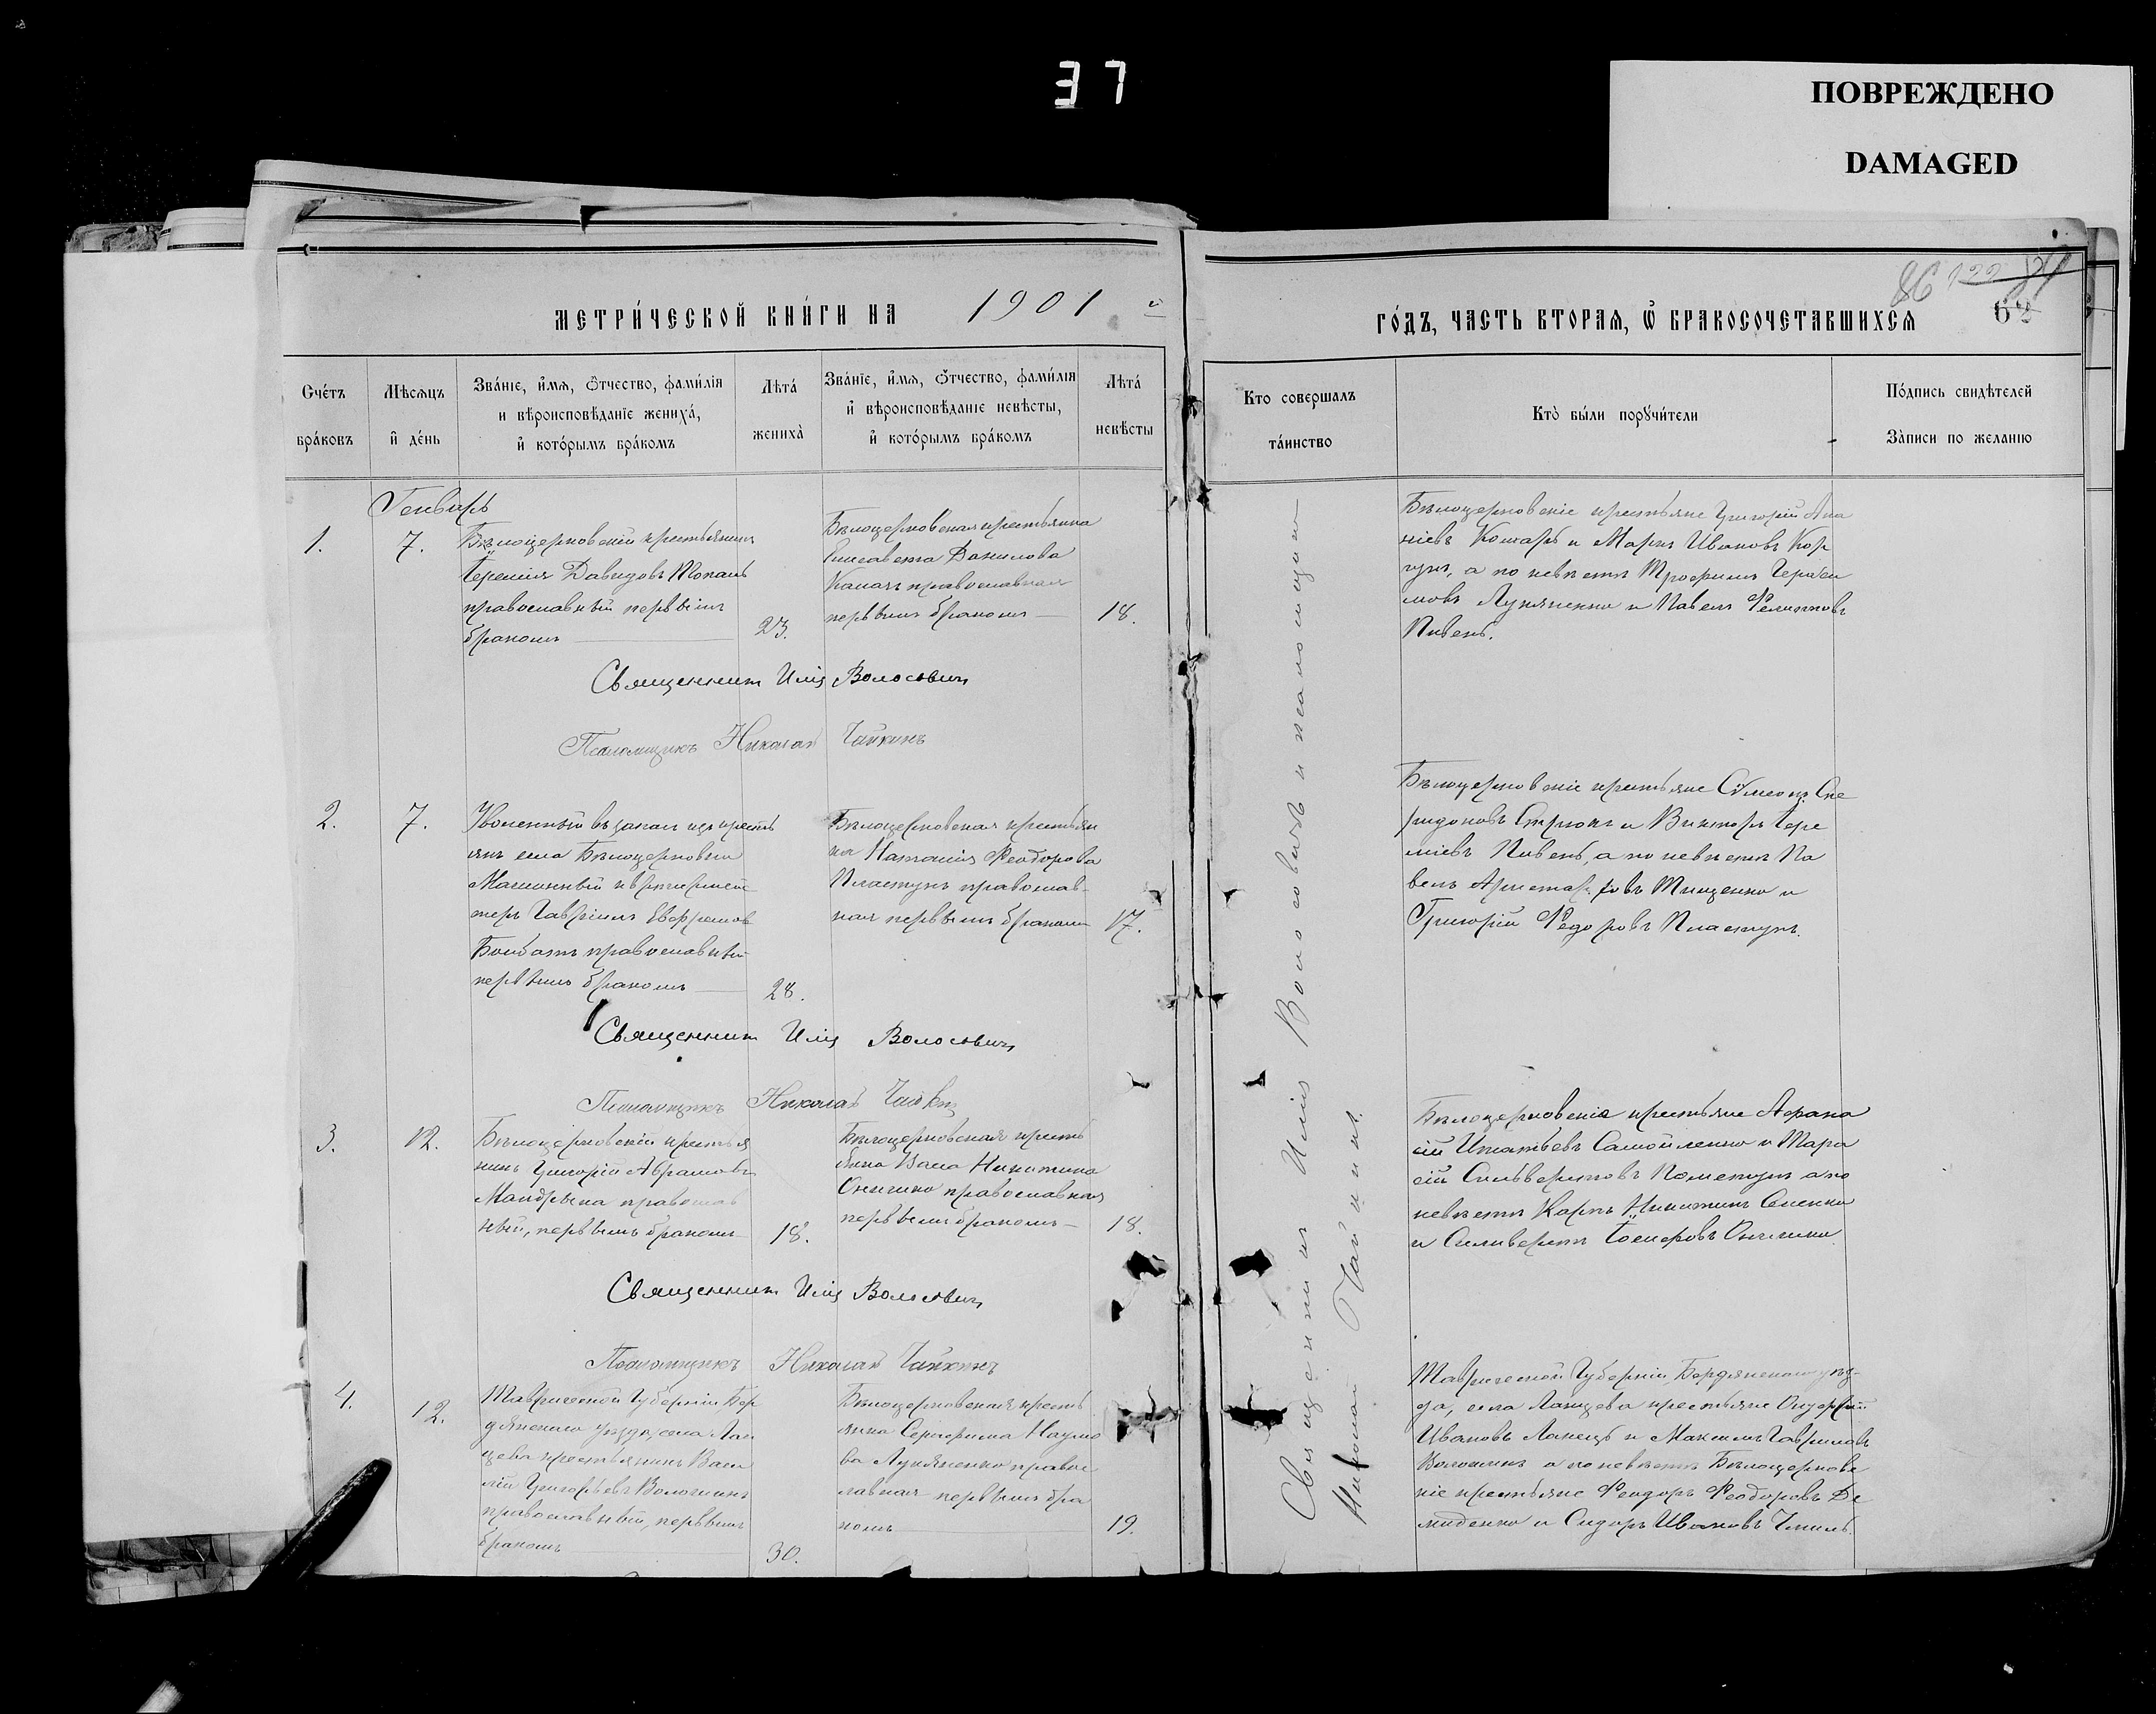 37
ПОВРЕЖДЕНО
DAMAGED
86 122
МЕТРИ́ЧЕСКОЙ КНИ́ГИ НА 1901 й
ГО́ДЪ, ЧАСТЬ ВТОРАЯ, Ѿ БРАКОСОЧЕТАВШИХСЯ
Сче́тъ бра́ковъ
Мѣсяцъ и де́нь
Зва́ніе, и́мя, о́тчество, фами́лія
и вѣроисповѣданіе жениха́,
и кото́рымъ бра́комъ
Лѣта́ жениха̀
Зва́ніе, и́мя, о́тчество, фами́лія
и вѣроисповѣданіе невѣсты,
и кото́рымъ бра́комъ
Лѣта́ невѣсты
Кто совершалъ та́инство
Кто̀ бы́ли поручи́тели
По́дпись свидѣтелей
За̀писи по желанію
Генварь
1.
7.
Бѣлоцерковскій крестьянинъ
Іеремія Давидовъ
православный первымъ
бракомъ
23.
Бѣлоцерковская крестьянка
Елисавета Данилова
православная
первымъ бракомъ
18.
Бѣлоцерковскіе крестьяне Григорій Ана
ніевъ и Маркъ Ивановъ Кор
а по невѣстѣ Трофимъ Гераси
мовъ Лукяненко и Павелъ Филиповъ
Пивень.
Священникъ Илія Волосовичъ
Псаломщикъ Николай Чайкинъ
2.
7.
Уволенный въ запасъ изъ кресть
янъ села Бѣлоцерковки
Машинный квартирмей
теръ Гавріилъ Евфремов
православный
первымъ бракомъ
28.
Бѣлоцерковская крестьян
ка Наталія Феодорова
Пластунъ православ-
ная первымъ бракомъ
17.
Бѣлоцерковскіе крестьяне Сѵмеонъ Спи
ридоновъ и Викторъ Іере
міевъ Пивень, а по невѣстѣ Па
велъ Аристарховъ Тищенко и
Григорій Федоровъ Пластунъ.
Священникъ Илія Волосовичъ
Псаломщикъ Николай Чайкинъ
3.
12.
Бѣлоцерковскій крестья
нинъ Григорій Абрамовъ
Мандрыка православ
ный, первымъ бракомъ
18.
Бѣлоцерковская кресть
янка Васса Никитина
Онишко православная
первымъ бракомъ
18.
Бѣлоцерковскіе крестьяне Афана
сій Игнатьевъ Самойленко и Тара
сій Сильверстовъ а по
невѣстѣ Карпъ Никитинъ
и Сильверстъ Іосифовъ Онишко
Священникъ Илія Волосовичъ
Псаломщикъ Николай Чайкинъ
4.
12.
Таврической Губерніи Бер
дянскаго уѣзда, села Лан
цева крестьянинъ Васи
лій Григорьевъ Волошинъ
православный, первымъ
бракомъ
30.
Бѣлоцерковская кресть
янка Серафима Наумо
ва Лукяненко правос
лавная первымъ бра
комъ
19.
Таврической Губерніи, Бердянскаго уѣз-
да, села Ланцева крестьяне
Ивановъ Ланецъ и Максимъ Гавриловъ
Волошинъ а по невѣстѣ Бѣлоцерковс
кіе крестьяне Феодоръ Феодоровъ Де
миденко и Сидоръ Ивановъ
Священникъ Илія Волосовичъ и псаломщикъ
Николай Чайкинъ.